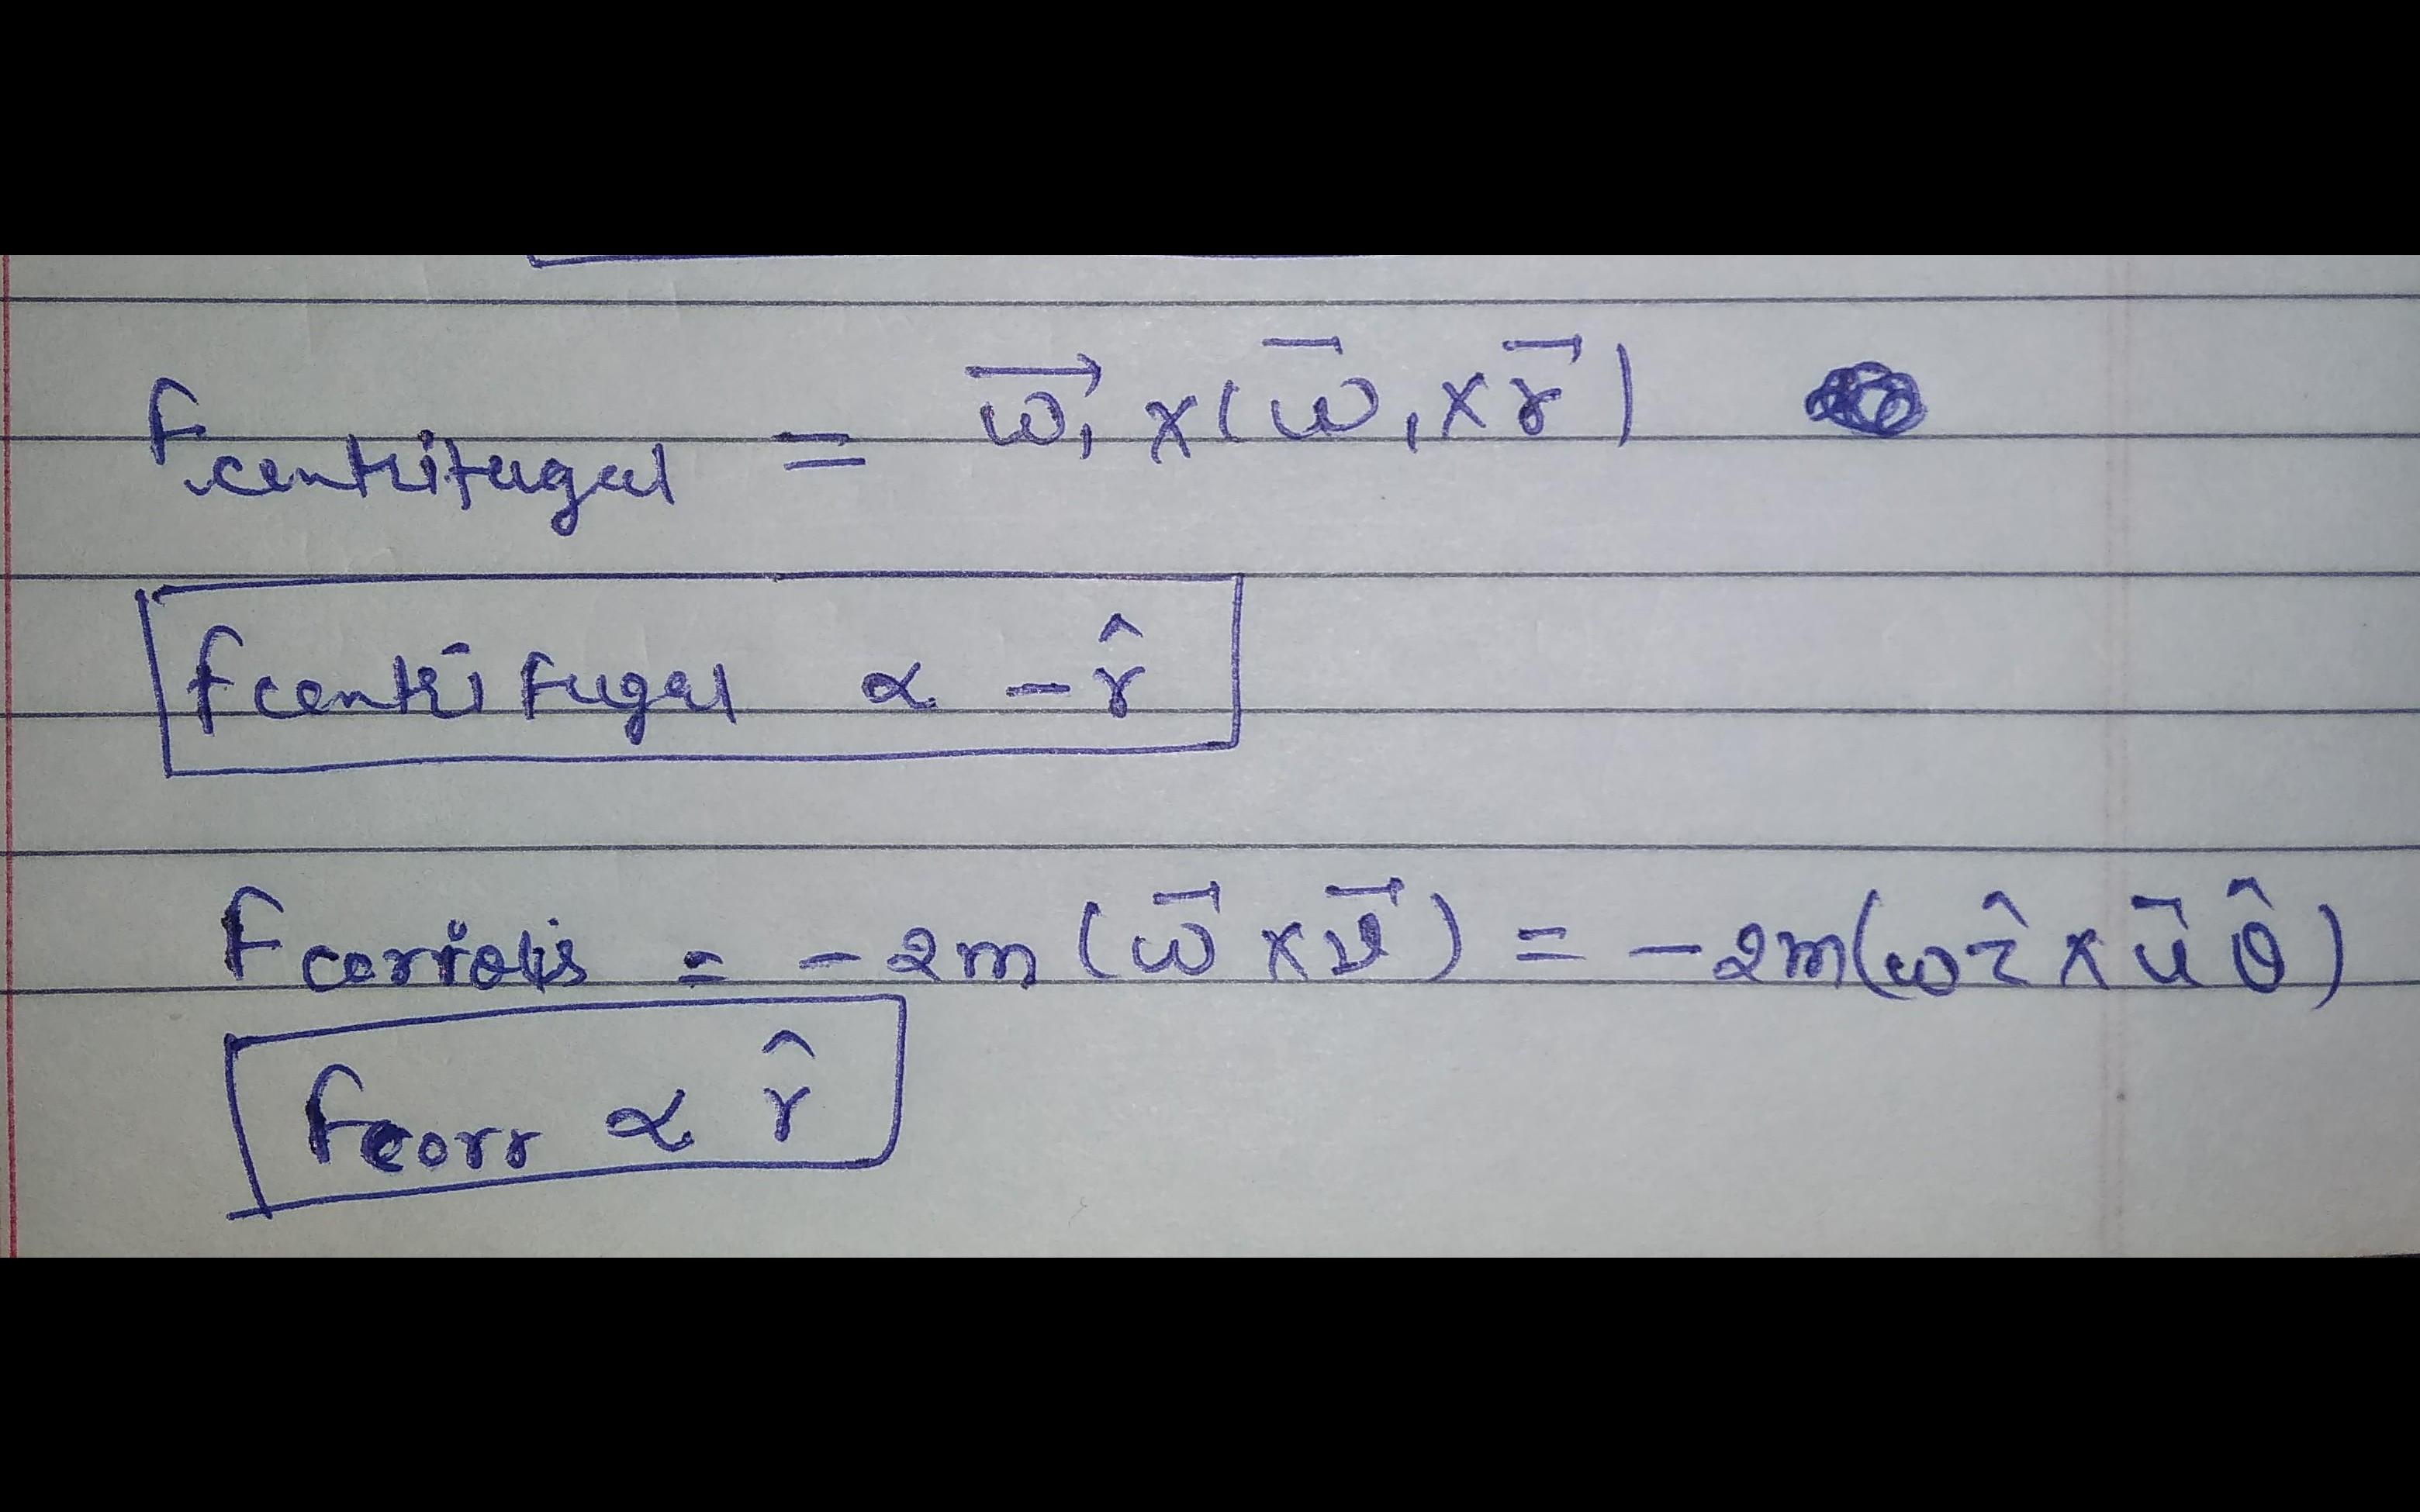 Fcentrifugal = ω⃗₁ × (ω⃗₁ × r⃗)
fcentrifugal ∝ - r̂
Fcoriolis = - 2m (ω⃗ × v⃗) = - 2m(ω ẑ × u⃗ θ̂)
fcorr ∝ r̂